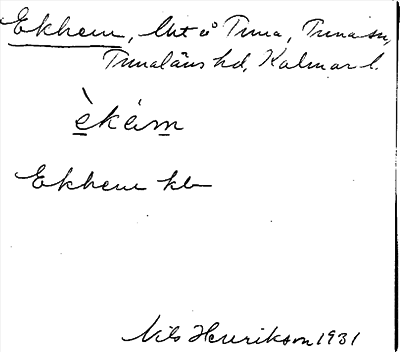 Ekhem, lht å Tuna, Tuna sn,
Tunaläns hd, Kalmar l.
èkám
Ekhem kb
Nils Henrikson 1931